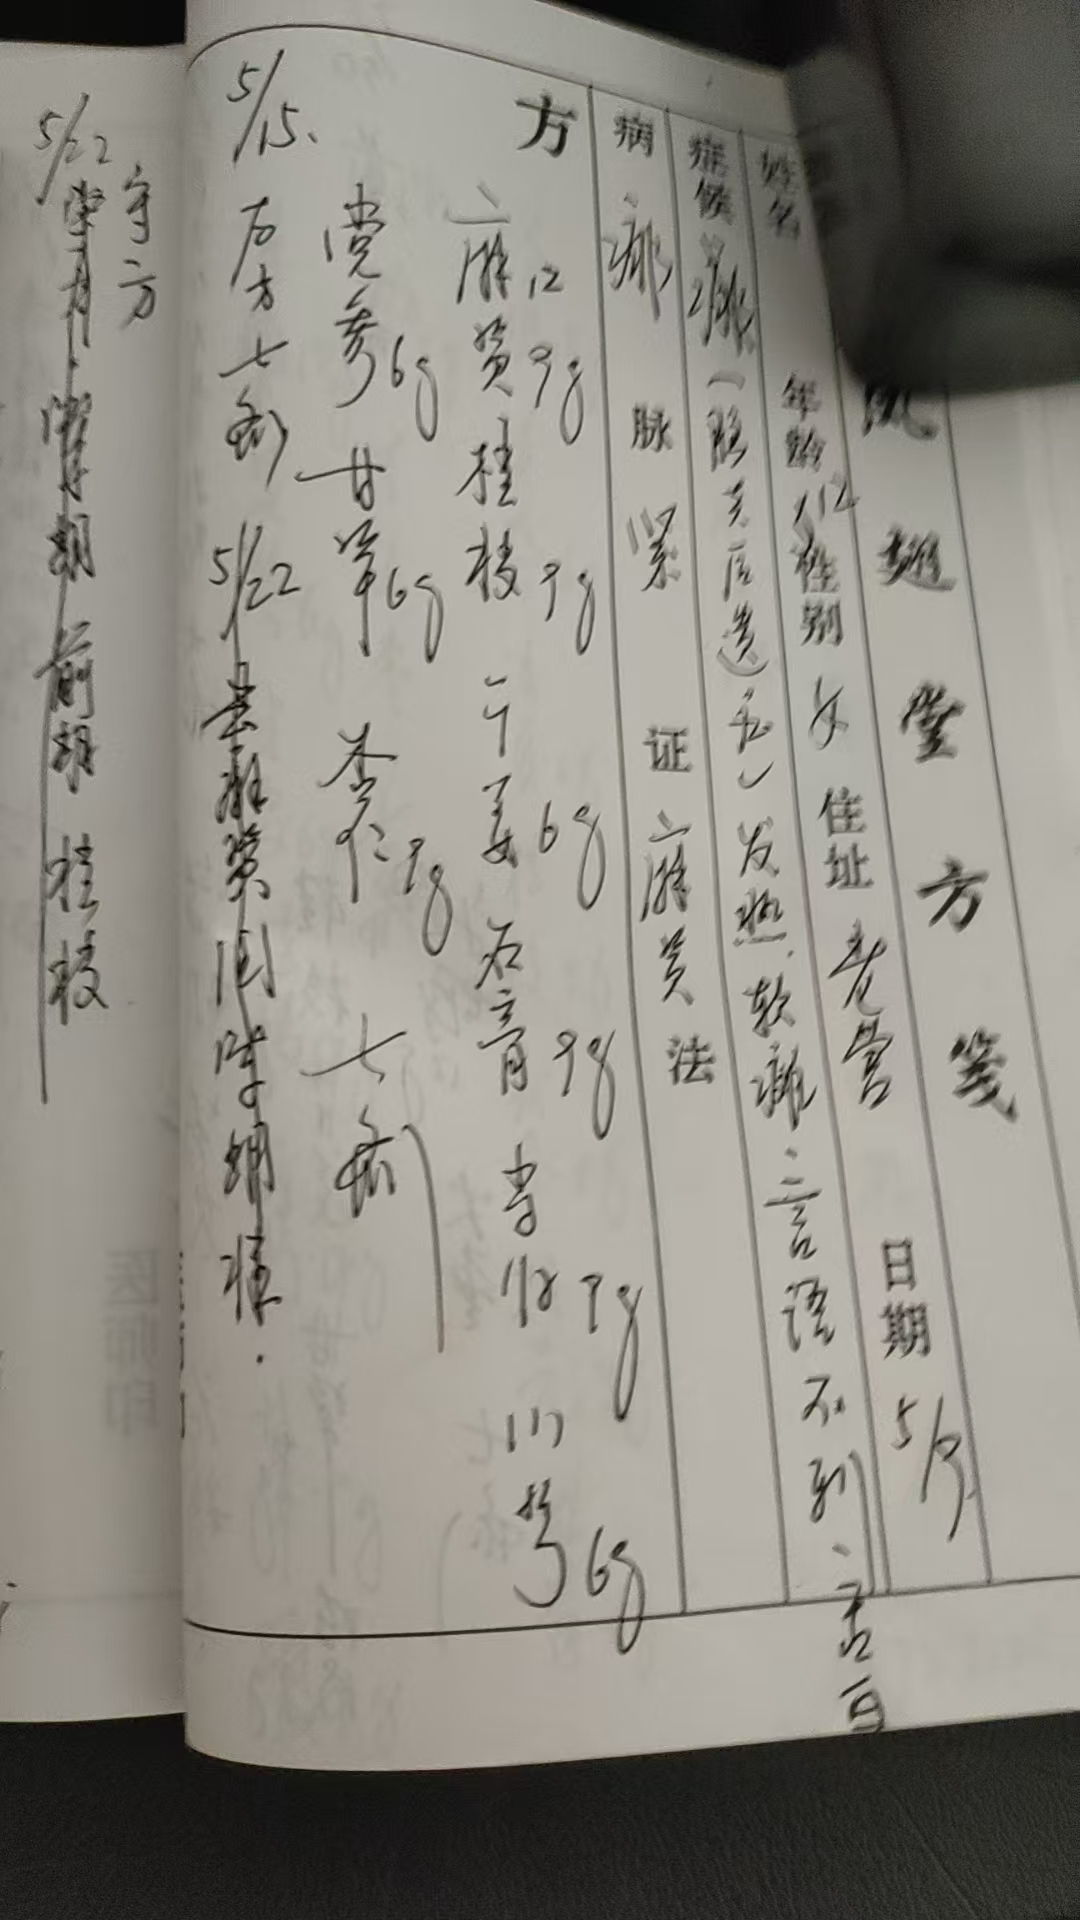 凤翅堂方笺
姓名 年龄 12 性别 女 住址 老营 日期 5/9
症候 痱(脑炎后遗症)发热、软瘫、言语不利、舌
病 痱 脉 紧 证 麻黄 法
方 麻黄9g 桂枝9g 干姜6g 石膏9g 当归9g 川芎6g
12
党参6g 甘草6g 杏仁9g 七剂
5/15. 右方七剂 5/22 去麻黄 银柴胡
5/22 守方
柴胡 前胡 桂枝
医师印